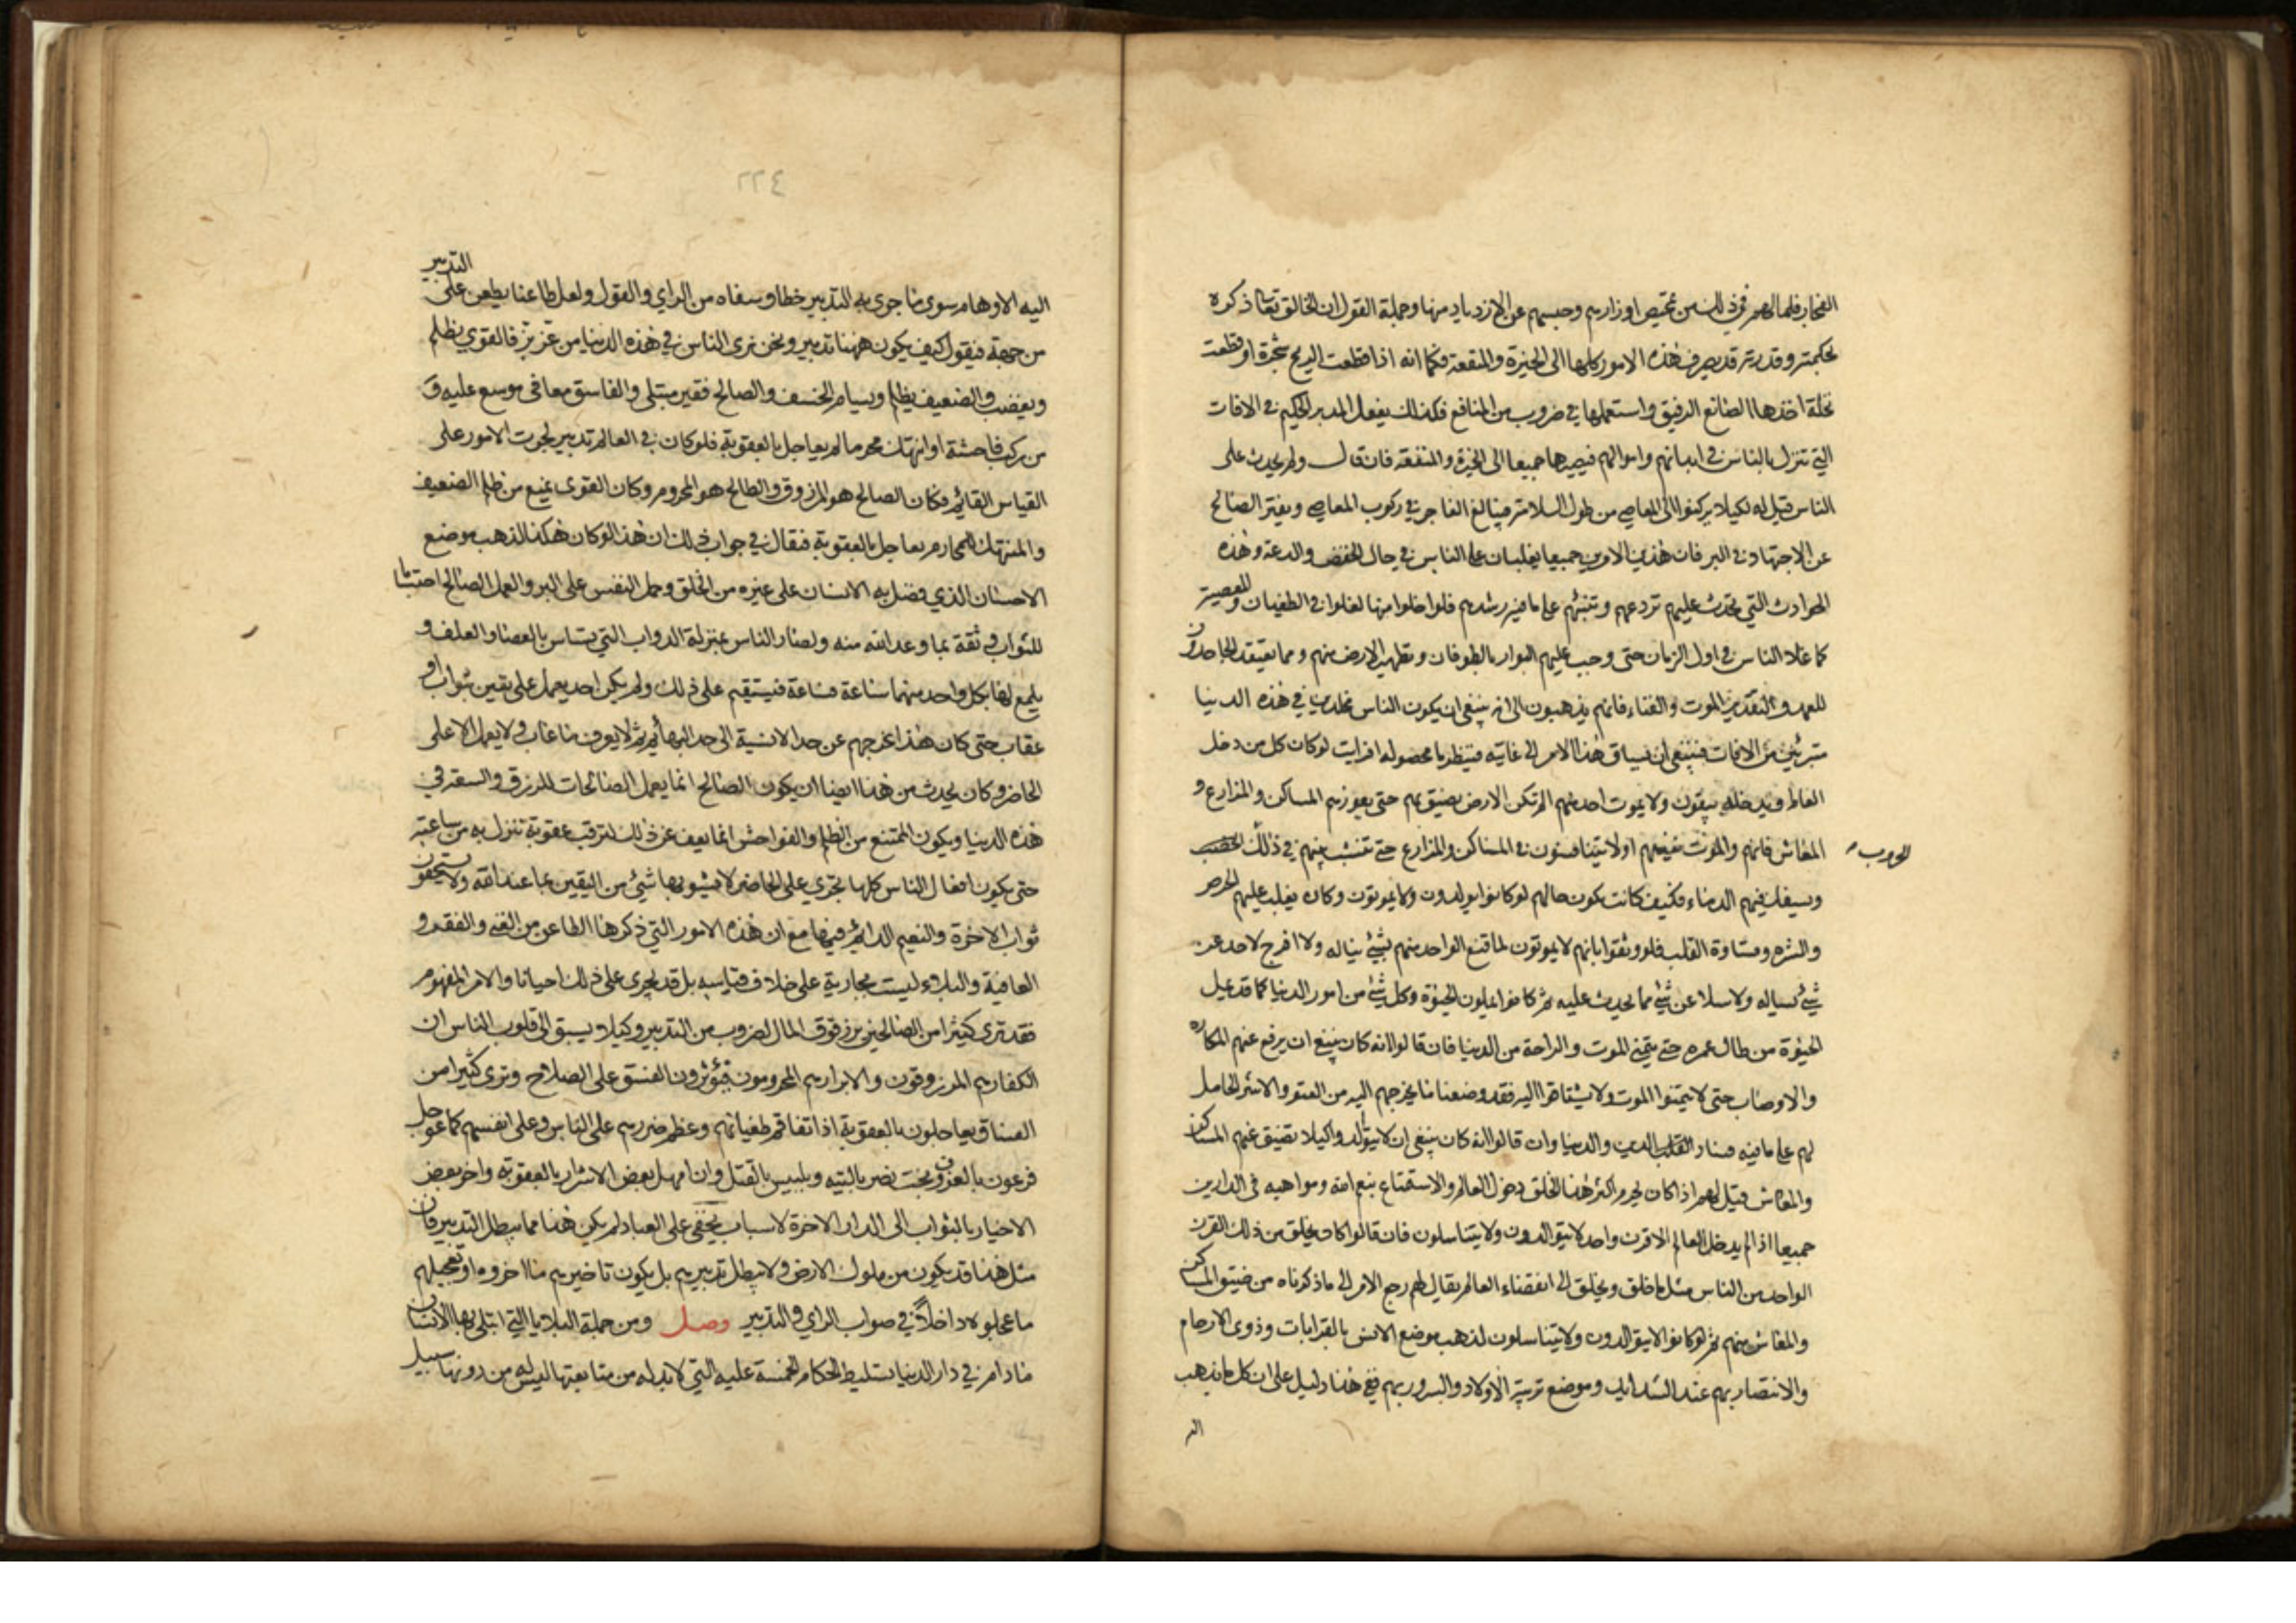 الفجار فلما لهم في ذلك من تمحيص اوزارهم وحبسهم عن الازدياد منها وجملة القول ان الخالق تعالى ذكره
بحكمته وقدرته قد يصرف هذه الامور كلها الى الخيرة والمنفعة فكما انه اذا قطعت الريح شجرة او قطعت
نخلة اخذها الصانع الرفيق واستعملها في ضروب من المنافع فكذلك يفعل المدبر الحكيم في الافات
التي تنزل بالناس في ابدانهم واموالهم فيصيرها جميعا الى الخيرة والمنفعة فان قال ولم يحدث على
الناس قيل له لكيلا يركنوا الى المعاصي من طول السلامة فيبالغ الفاجر في ركوب المعاصي ويفتر الصالح
عن الاجتهاد في البر فان هذين الامرين جميعا يغلبان على الناس في حال الخفض والدعة وهذه
الحوادث التي تحدث عليهم تردعهم وتنبههم على ما فيه رشدهم فلو اخلوا منها لغلوا في الطغيان والمعصية
كما غلا الناس في اول الزمان حتى وجب عليهم البوار بالطوفان وتطهير الارض منهم ومما يعتقد الجاحدون
للعمد والتقدير الموت والفناء فانهم يذهبون الى انه ينبغي ان يكون الناس مخلدين في هذه الدنيا
متبرئين من الافات فينبغي ان نساق هذا الامر الى غايته فينظر ما محصوله افرايت لو كان كل من دخل
العالم ويدخله يبقون ولا يموت احد منهم الم تكن الارض يضيق بهم حتى يعوزهم المساكن والمزارع و
المعاش فانهم والموت يفنيهم اولا يتنافسون في المساكن والمزارع حتى تنشب بينهم في ذلك
الحروب
ويسفك فيهم الدماء فكيف كانت تكون حالهم لو كانوا يولدون ولا يموتون وكان يغلب عليهم الحرص
والشره وقساوة القلب فلو وثقوا بانهم لا يموتون لما قنع الواحد منهم بشيء يناله ولا افرج لاحد عن
شيء يساله ولا سلا عن شيء مما يحدث عليه ثم كانوا يملون الحيوة وكل شيء من امور الدنيا كما قد يمل
الحيوة من طال عمره حتى يتمنى الموت والراحة من الدنيا فان قالوا انه كان ينبغي ان يرفع عنهم المكاره
والاوصاب حتى لا يتمنوا الموت ولا يشتاقوا اليه فقد وصفنا ما يخرجهم اليه من العتو والاشر الحامل
لهم على ما فيه فساد الدين والدنيا وان قالوا انه كان ينبغي ان لا يتوالدوا كيلا تضيق عنهم المساكن
والمعاش قيل لهم اذا كان يحرم اكثر هذا الخلق دخول العالم والاستمتاع بنعم الله ومواهبه في الدارين
جميعا اذا لم يدخل العالم الا قرن واحد لا يتوالدون ولا يتناسلون فان قالوا كان يخلق من ذلك القرن
الواحد من الناس مثل ما خلق ويخلق الى انقضاء العالم يقال لهم رجع الامر الى ما ذكرناه من ضيق المساكن
والمعاش منهم ثم لو كانوا لا يتوالدون ولا يتناسلون لذهب موضع الانس بالقرابات وذوي الارحام
والانتصار بهم عند الشدايد وموضع تربية الاولاد والسرور بهم ففي هذا دليل على ان كل ما يذهب
اليه
٢٢٤
اليه الاوهام سوى ما جرى به التدبير خطا وسفاه من الراي والقول ولعل طاعنا يطعن على التدبير
من جهة فيقول كيف يكون ههنا تدبير ونحن نرى الناس في هذه الدنيا من عز بز فالقوي يظلم
ويغصب والضعيف يظلم ويسام الخسف والصالح فقير مبتلى والفاسق معافى موسع عليه و
من ركب فاحشة او انتهك محرما لم يعاجل بالعقوبة فلو كان في العالم تدبير لجرت الامور على
القياس القائم فكان الصالح هو المرزوق والطالح هو المحروم وكان القوي يمنع من ظلم الضعيف
والمنتهك للمحارم يعاجل بالعقوبة فيقال في جواب ذلك ان هذا لو كان هكذا لذهب موضع
الاحسان الذي فضل به الانسان على غيره من الخلق وحمل النفس على البر والعمل الصالح احتسابا
للثواب وثقة بما وعد الله منه ولصار الناس بمنزلة الدواب التي تساس بالعصا والعلف و
يلمع لها بكل واحد منهما ساعة فساعة فيستقيم على ذلك ولم يكن احد يعمل على يقين بثواب او
عقاب حتى كان هذا يخرجهم عن حد الانسية الى حد البهائم ثم لا يعرف ما غاب ولا يعمل الا على
الحاضر وكان يحدث من هذا ايضا ان يكون الصالح انما يعمل الصالحات للرزق والسعة في
هذه الدنيا ويكون الممتنع من الظلم والفواحش انما يعف عن ذلك لترقب عقوبة تنزل به من ساعته
حتى يكون افعال الناس كلها تجري على الحاضر لا يشوبها شيء من اليقين بما عند الله ولا يستحقون
ثواب الاخرة والنعيم الدائم فيها مع ان هذه الامور التي ذكرها الطاعن من الغنى والفقر و
العافية والبلاء ليست بجارية على خلاف قياسه بل قد يجري على ذلك احيانا والامر المفهوم
فقد ترى كثيرا من الصالحين يرزقون المال لضروب من التدبير وكيلا يسبق الى قلوب الناس ان
الكفار هم المرزوقون والابرار هم المحرومون فيؤثرون الفسق على الصلاح وترى كثيرا من
الفساق يعاجلون بالعقوبة اذا تفاقم طغيانهم وعظم ضررهم على الناس وعلى انفسهم كما عوجل
فرعون بالغرق وبخت نصر بالتيه وبلبيس بالقتل وان امهل بعض الاشرار بالعقوبة واخر بعض
الاخيار بالثواب الى الدار الاخرة لاسباب يخفى على العباد لم يكن هذا مما يبطل التدبير فان
مثل هذا قد يكون من ملوك الارض ولا يبطل تدبيرهم بل يكون تاخيرهم ما اخروه او تعجيلهم
ما عجلوه داخلا في صواب الراي والتدبير وصل ومن جملة البلايا التي ابتلي بها الانسان
ما دام في دار الدنيا تسليط الحكام الخمسة عليه التي لا بد له من متابعتها ليس له من دونها سبيل